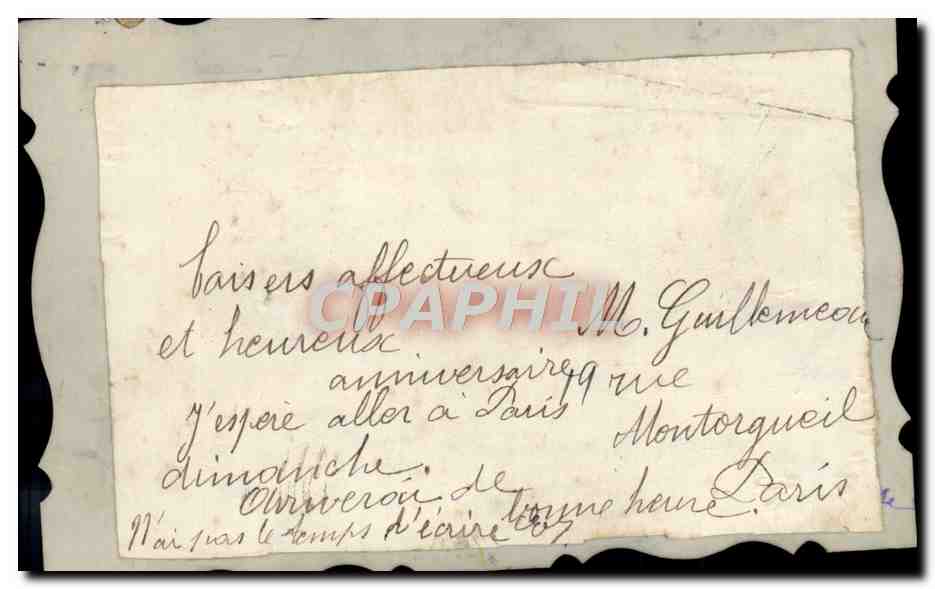 baisers affectueux
et heureux
anniversaire
J'espère aller à Paris
dimanche.
Arriverai de
bonne heure.
N'ai pas le temps d'écrire
M. Guillemeau
19 rue
Montorgueil
Paris
CPAPHIL